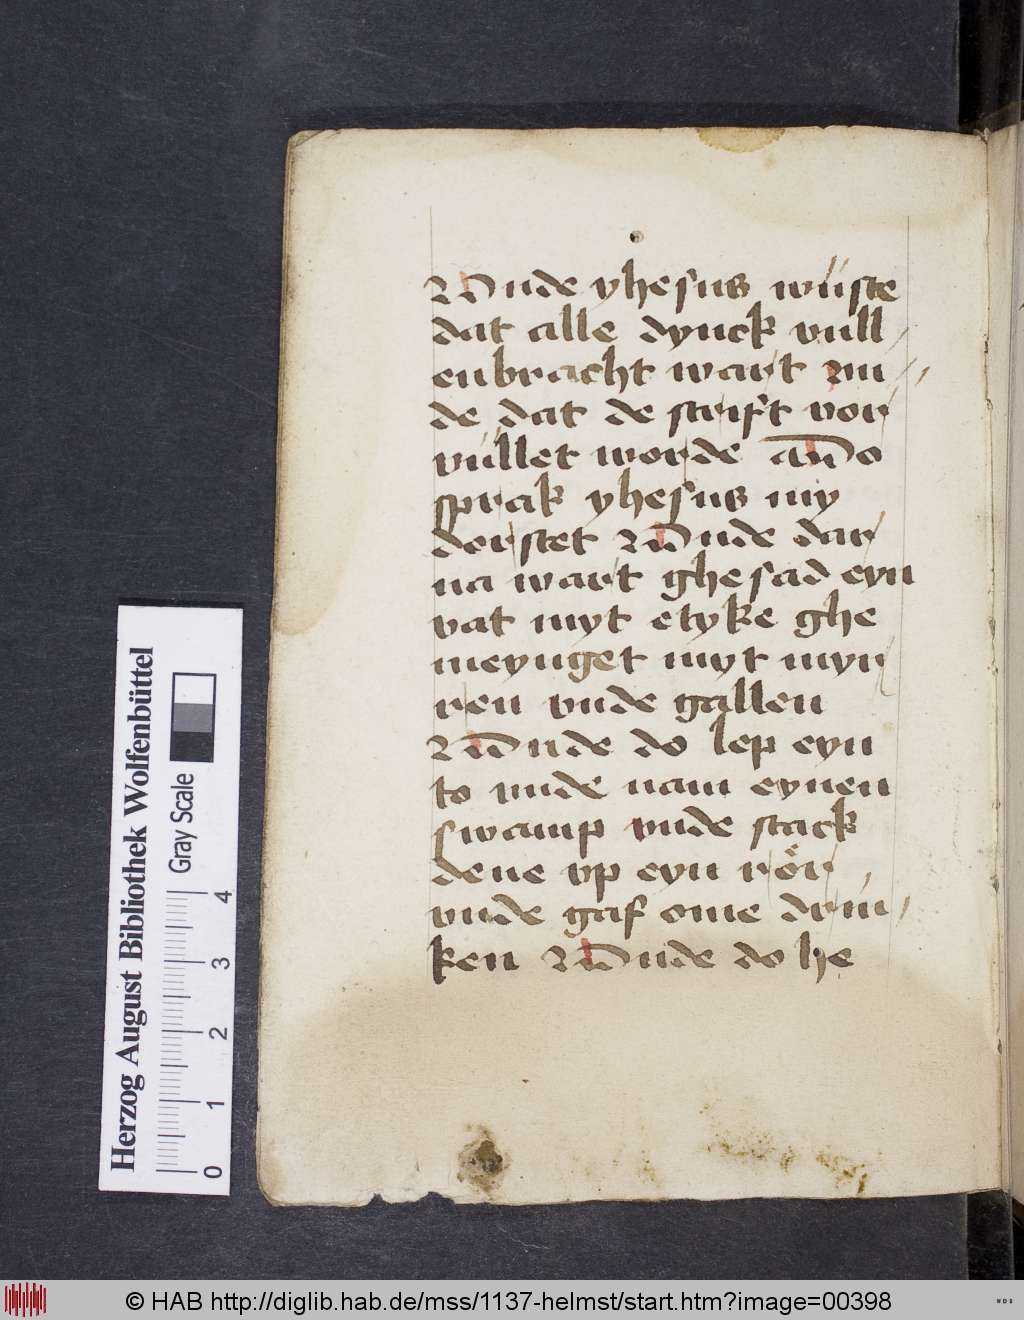 Vnde yhesus wüste
dat alle dynck vull
enbracht wart vn
de dat de scrift vor
vüllet worde also
sprak yhesus my
dorstet Vnde dar
na wart ghesad eyn
vat myt etyke ghe
meynget myt myr
ren vnde gallen
Vnde do lep eyn
to vnde nam eynen
swamp vnde stack
dene vp eyn rör
vnde gaf ome drin
ken Vnde do he
Herzog August Bibliothek Wolfenbüttel
Gray Scale
0 1 2 3 4
© HAB http://diglib.hab.de/mss/1137-helmst/start.htm?image=00398